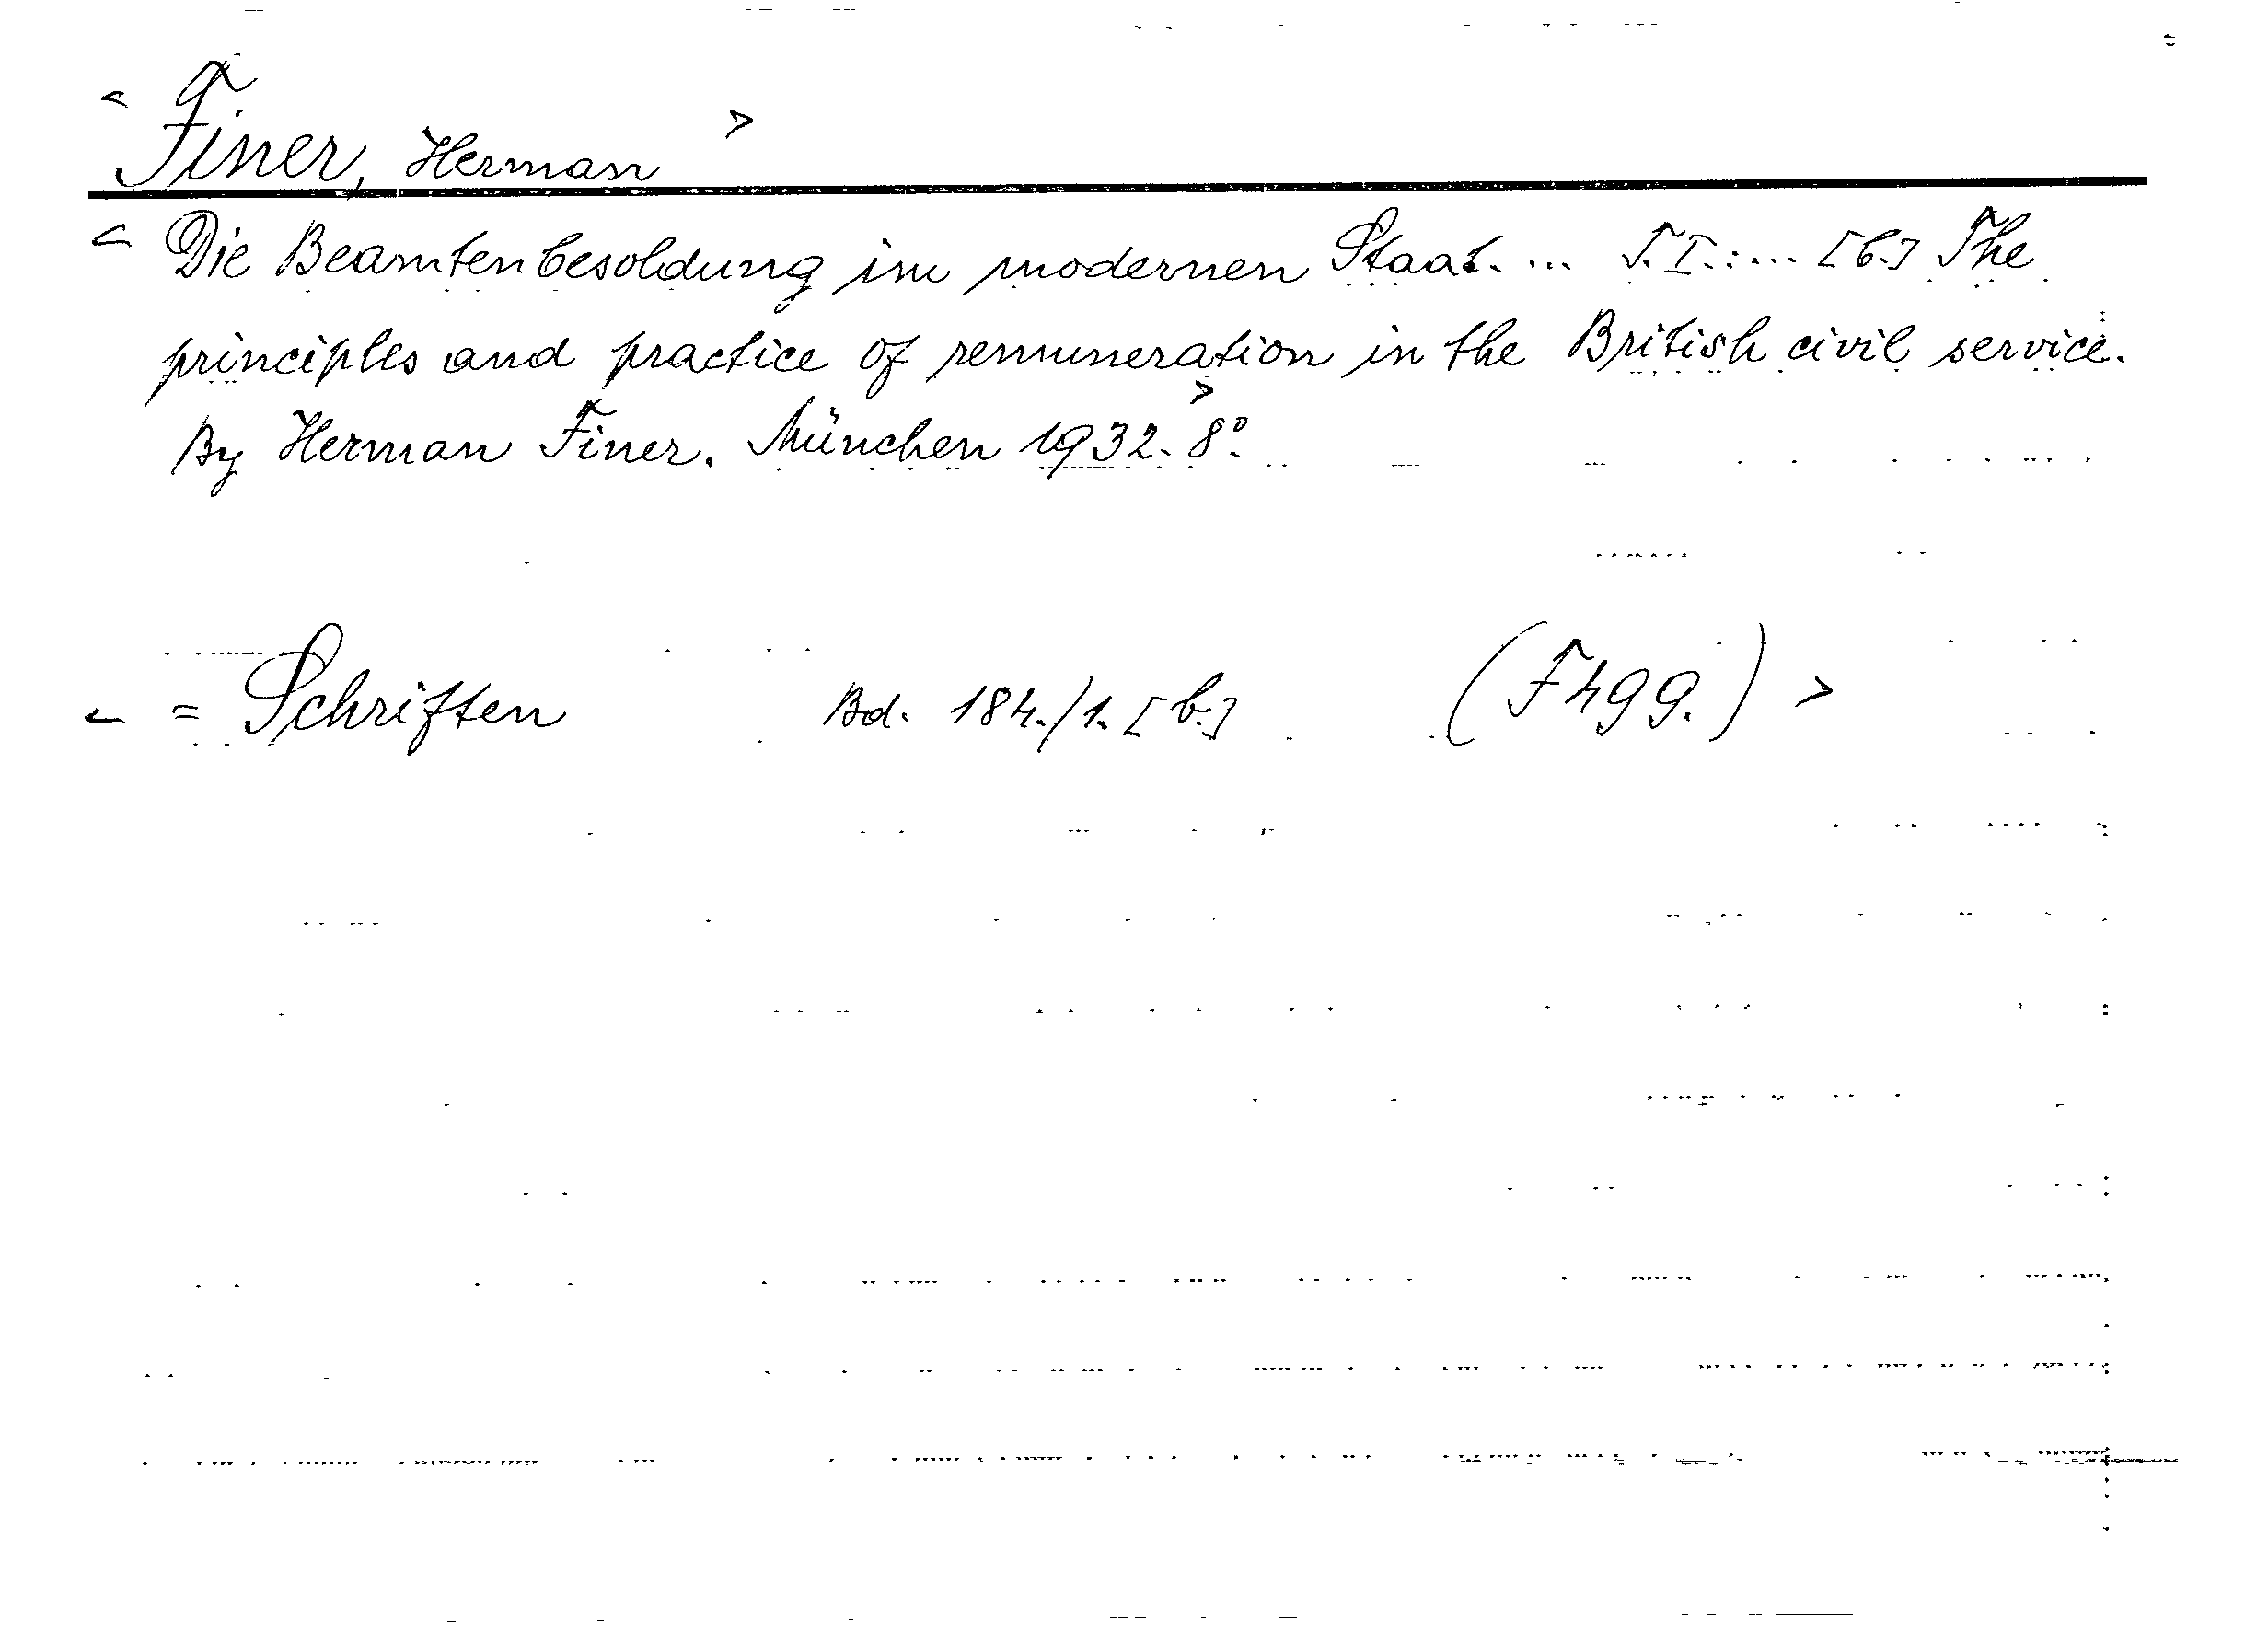 < Finer, Herman >
< Die Beamtenbesoldung im modernen Staat. ... T.I.: ... [b.] The
principles and practice of remuneration in the British civil service.
By Herman Finer. München 1932. > 8°.
< = Schriften Bd. 184./1. [b.] (F499.) >